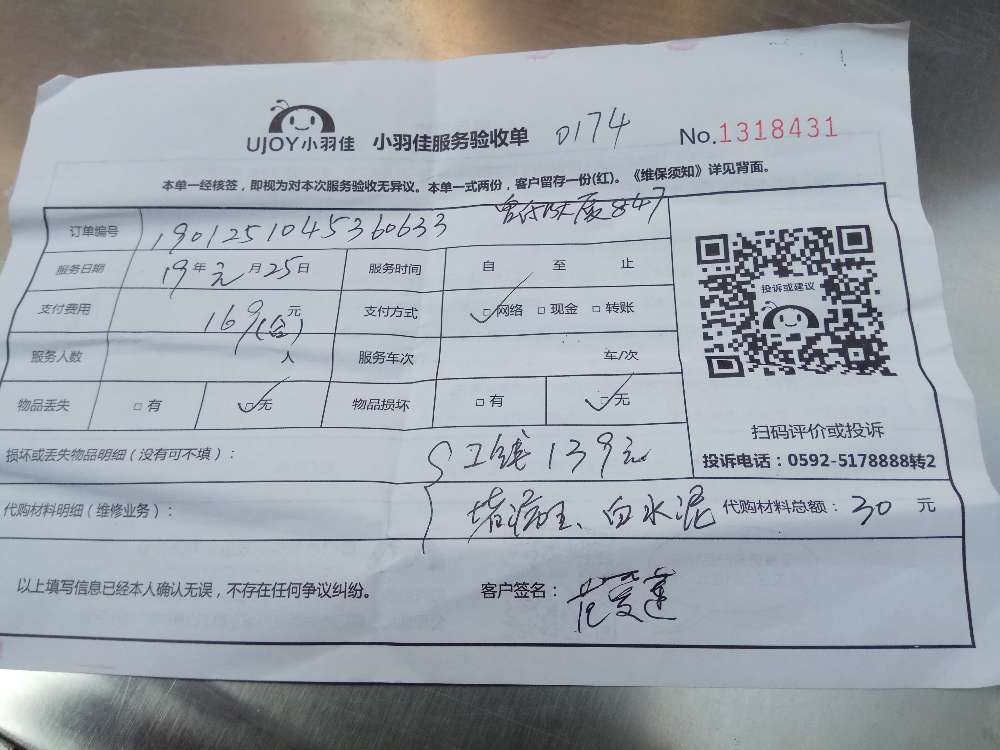 UJOY小羽佳 小羽佳服务验收单 0174 No.1318431
本单一经核签，即视为对本次服务验收无异议。本单一式两份，客户留存一份(红)。《维保须知》详见背面。
847
订单编号 1901251045360633
服务日期 19年元月25日 服务时间 自 至 止
投诉或建议
支付费用 169(合)元 支付方式 □网络 □现金 □转账
服务人数 人 服务车次 车/次
物品丢失 □有 □无 物品损坏 □有 □无
扫码评价或投诉
损坏或丢失物品明细（没有可不填）： 工钱139元
投诉电话：0592-5178888转2
代购材料明细（维修业务）： 堵漏王、白水泥 代购材料总额：30元
以上填写信息已经本人确认无误，不存在任何争议纠纷。 客户签名： 范爱莲